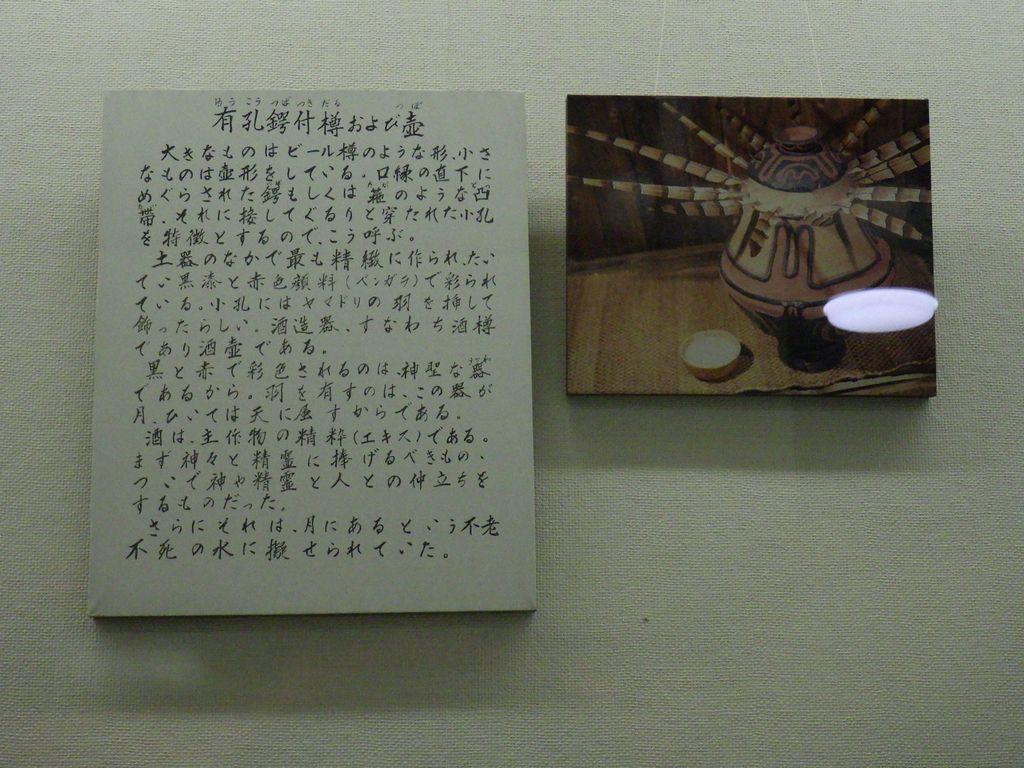 ゆう こう つば つき だる つぼ
有孔鍔付樽および壺
大きなものはビール樽のような形、小さ
なものは壺形をしている。口縁の直下に
めぐらされた鍔もしくは箍のような凸
帯、それに接してぐるりと穿たれた小孔
を特徴とするので、こう呼ぶ。
土器のなかで最も精緻に作られ、たい
てい黒漆と赤色顔料(ベンガラ)で彩られ
ている。小孔にはヤマドリの羽を挿して
飾ったらしい。酒造器、すなわち酒樽
であり酒壺である。
黒と赤で彩色されるのは、神聖な器
であるから。羽を有すのは、この器が
月、ひいては天に属すからである。
酒は、主作物の精粋(エキス)である。
まず神々と精霊に捧げるべきもの、
ついで神や精霊と人との仲立ちを
するものだった。
さらにそれは、月にあるという不老
不死の水に擬せられていた。